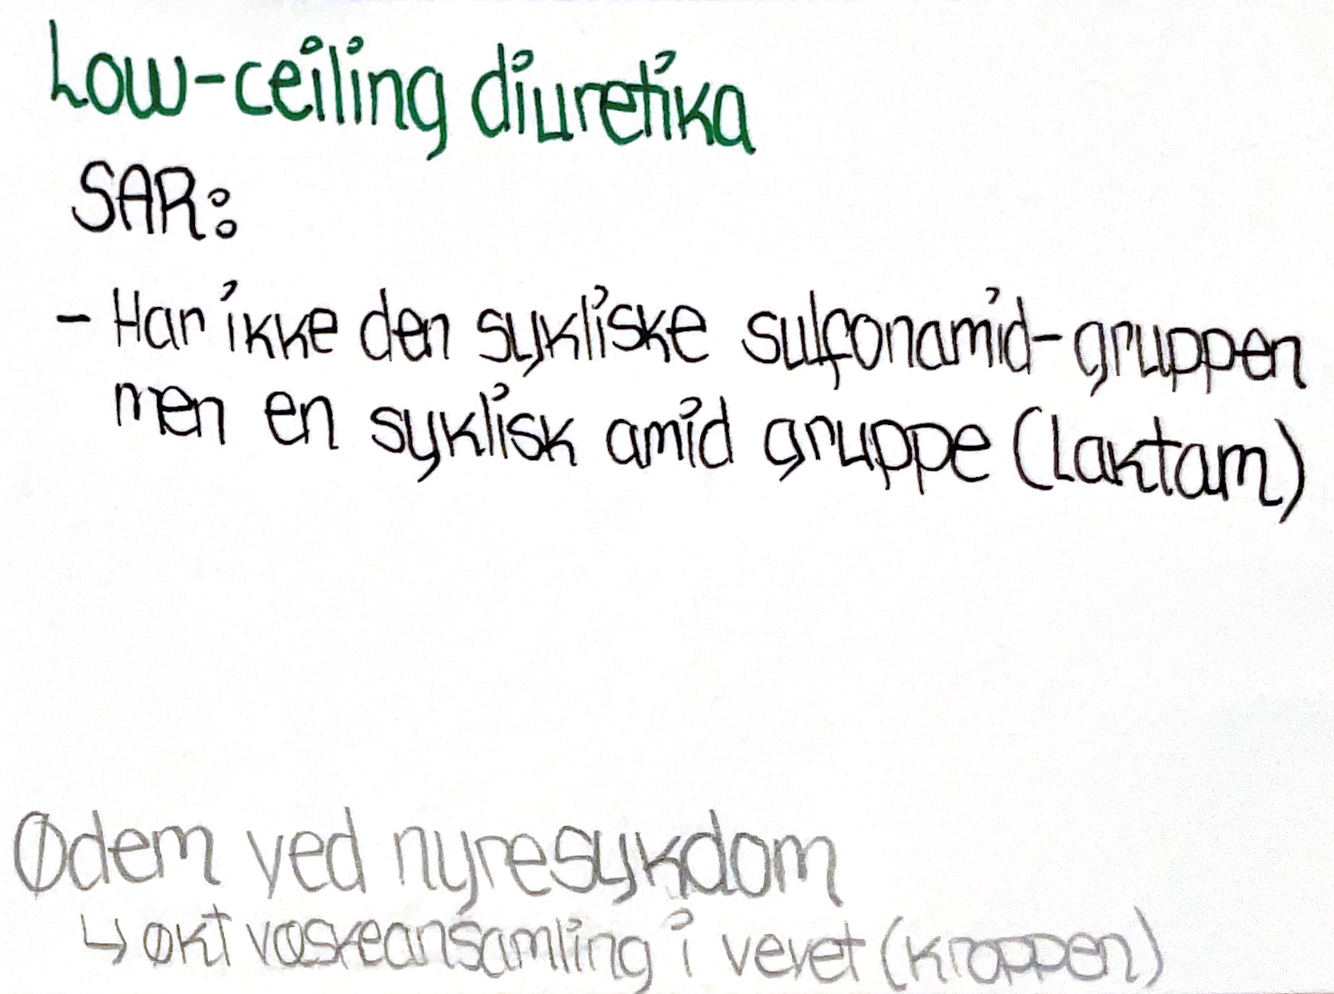 Low-ceiling diuretika
SAR:
- Har ikke den sykliske sulfonamid-gruppen
men en syklisk amid gruppe (laktam)
Ødem ved nyresykdom
↳ økt væskeansamling i vevet (kroppen)